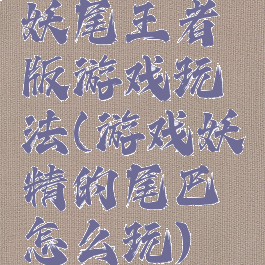 妖尾王者
版游戏玩
法(游戏妖
精的尾巴
怎么玩)